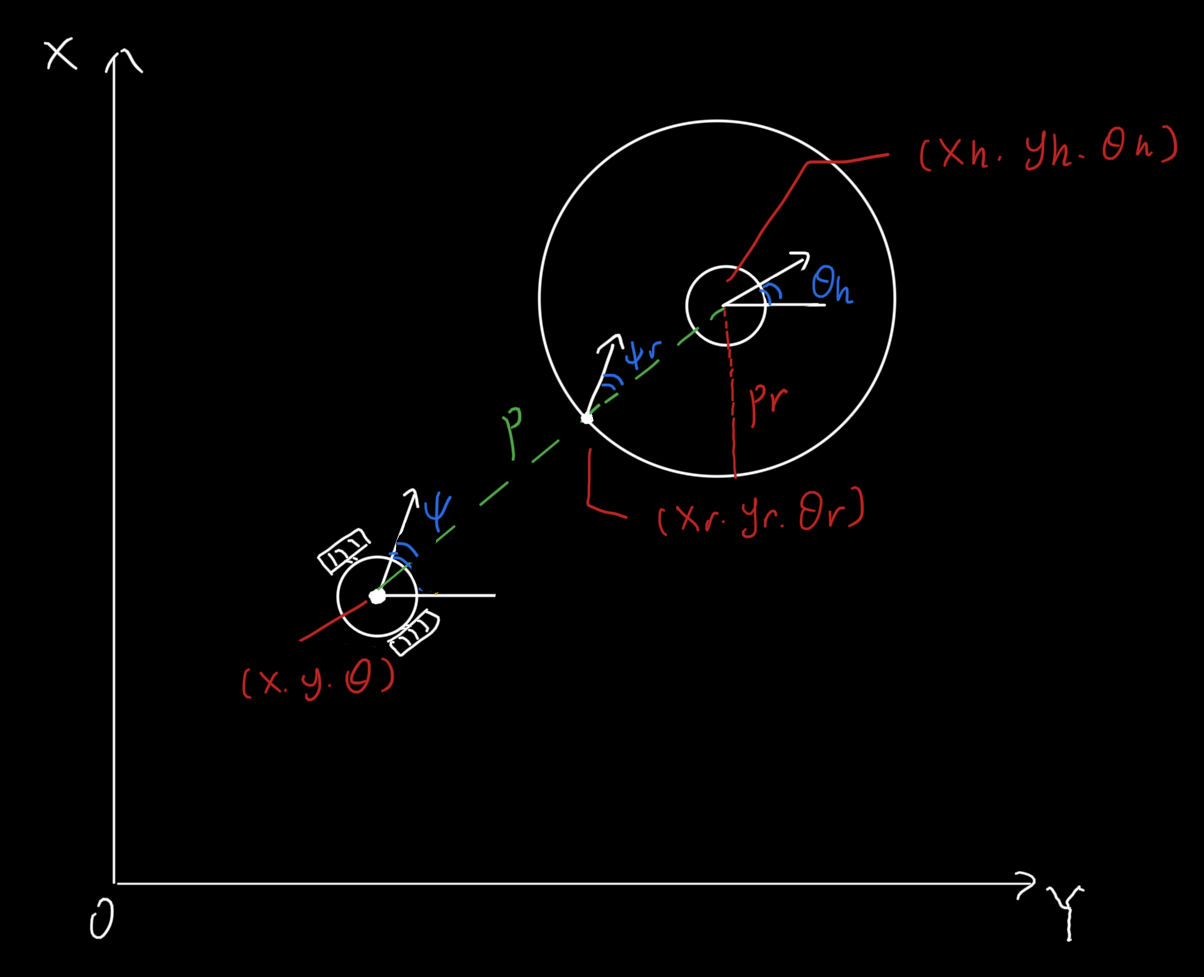 X
(Xh. yh. θh)
θh
ψr
ρr
ρ
(Xr. yr. θr)
ψ
(x. y. θ)
O
Y